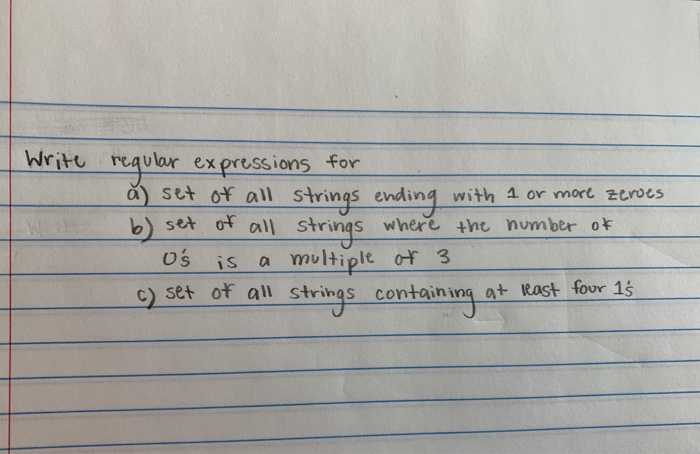 Write regular expressions for
a) set of all strings ending with 1 or more zeroes
b) set of all strings where the number of
0's is a multiple of 3
c) set of all strings containing at least four 1's